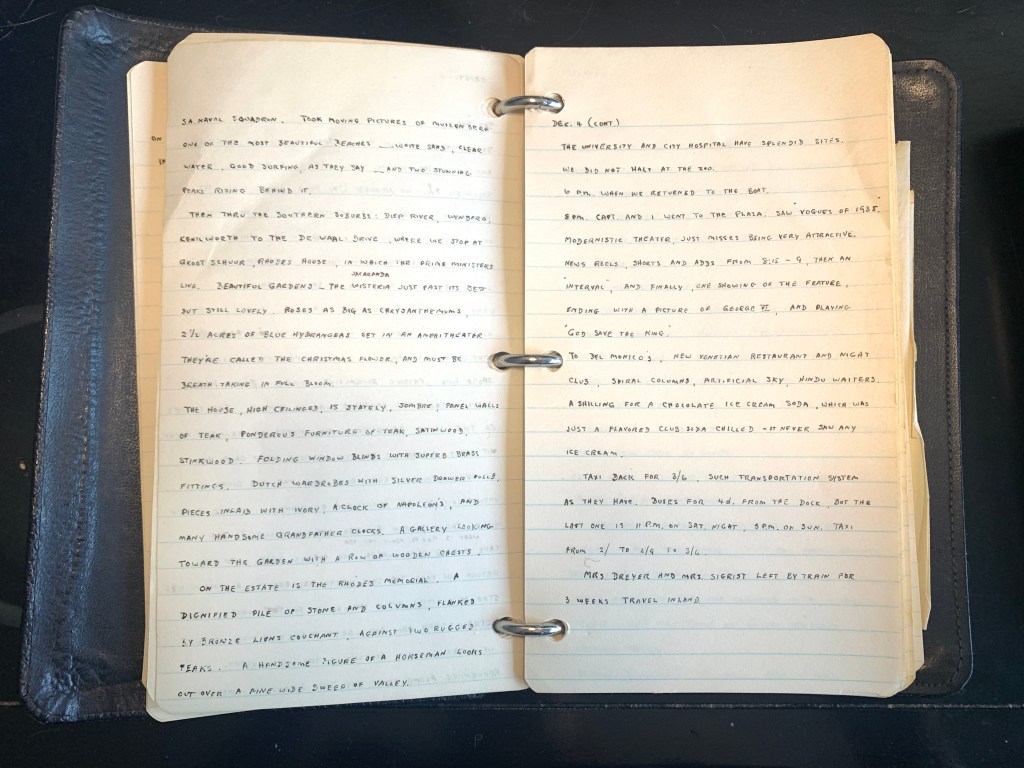 ON
IN
SA NAVAL SQUADRON. TOOK MOVING PICTURES OF MUIZENBERG
ONE OF THE MOST BEAUTIFUL BEACHES — WHITE SAND, CLEAR
WATER, GOOD SURFING, AS THEY SAY — AND TWO STUNNING
PEAKS RISING BEHIND IT.
THEN THRU THE SOUTHERN SUBURBS: DIEP RIVER, WYNBERG,
KENILWORTH TO THE DE WAAL DRIVE, WHERE WE STOP AT
GROOT SCHUUR, RHODES HOUSE, IN WHICH THE PRIME MINISTERS
JACARANDA
LIVE. BEAUTIFUL GARDENS - THE WISTERIA JUST PAST ITS BEST
BUT STILL LOVELY. ROSES AS BIG AS CHRYSANTHEMUMS,
2 1/2 ACRES OF BLUE HYDRANGEAS SET IN AN AMPHITHEATER
THEY'RE CALLED THE CHRISTMAS FLOWER, AND MUST BE
BREATH-TAKING IN FULL BLOOM.
THE HOUSE, HIGH CEILINGED, IS STATELY, SOMBRE, PANEL WALLS
OF TEAK, PONDEROUS FURNITURE OF TEAK, SATINWOOD,
STINKWOOD. FOLDING WINDOW BLINDS WITH SUPERB BRASS
FITTINGS. DUTCH WARDROBES WITH SILVER DRAWER PULLS,
PIECES INLAID WITH IVORY, A CLOCK OF NAPOLEON'S, AND
MANY HANDSOME GRANDFATHER CLOCKS. A GALLERY LOOKING
TOWARD THE GARDEN WITH A ROW OF WOODEN CHESTS.
ON THE ESTATE IS THE RHODES MEMORIAL. A
DIGNIFIED PILE OF STONE AND COLUMNS, FLANKED
BY BRONZE LIONS COUCHANT, AGAINST TWO RUGGED
PEAKS. A HANDSOME FIGURE OF A HORSEMAN LOOKS
OUT OVER A FINE WIDE SWEEP OF VALLEY.
DEC. 4 (CONT.)
THE UNIVERSITY AND CITY HOSPITAL HAVE SPLENDID SITES.
WE DID NOT HALT AT THE ZOO.
6 P.M. WHEN WE RETURNED TO THE BOAT.
8 P.M. CAPT. AND I WENT TO THE PLAZA. SAW "VOGUES OF 1938".
MODERNISTIC THEATER, JUST MISSES BEING VERY ATTRACTIVE.
NEWS REELS, SHORTS AND ADDS FROM 8:15 - 9, THEN AN
"INTERVAL", AND FINALLY, ONE SHOWING OF THE FEATURE,
ENDING WITH A PICTURE OF GEORGE VI, AND PLAYING
"GOD SAVE THE KING".
TO DEL MONICO'S, NEW VENETIAN RESTAURANT AND NIGHT
CLUB, SPIRAL COLUMNS, ARTIFICIAL SKY, HINDU WAITERS.
A SHILLING FOR A CHOCOLATE ICE CREAM SODA, WHICH WAS
JUST A FLAVORED CLUB SODA CHILLED - IT NEVER SAW ANY
ICE CREAM.
TAXI BACK FOR 3/6, SUCH TRANSPORTATION SYSTEM
AS THEY HAVE. BUSES FOR 4d. FROM THE DOCK, BUT THE
LAST ONE IS 11 P.M. ON SAT. NIGHT, 5 P.M. ON SUN. TAXI
FROM 2/ TO 2/9 TO 3/6.
MRS DREYER AND MRS SIGRIST LEFT BY TRAIN FOR
3 WEEKS TRAVEL INLAND